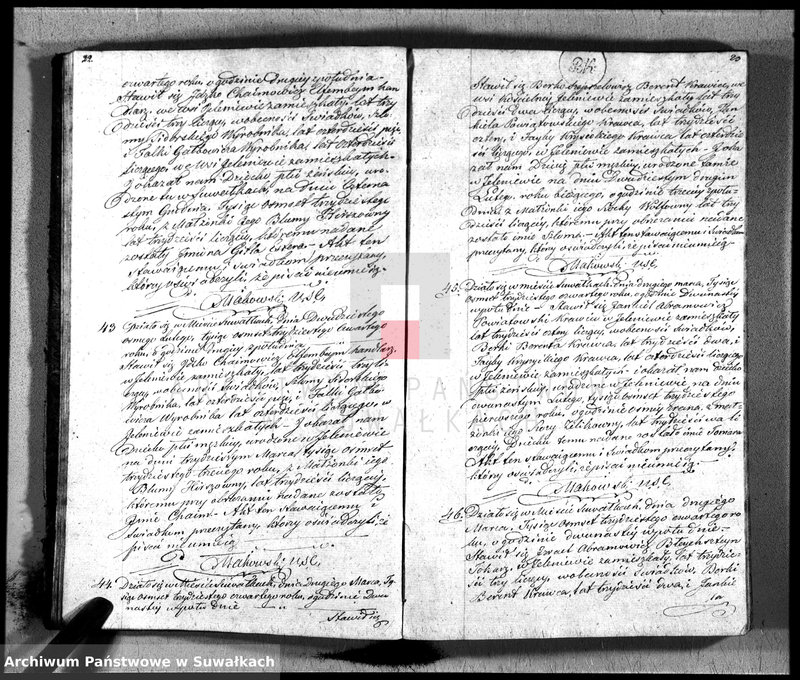 22.
czwartego roku, o godzinie drugiey z południa
Stawił się Jdzko Chaimowicz
we wsi Jeleniewie zamieszkały, lat trzy
dzieści trzy liczący, w obecności Świadków, Szlo
my Siderskiego Wyrobnika, lat czterdzieści pięć
i Falki Gotbowicza Wyrobnika, lat czterdzieści
liczącego, w wsi Jeleniewie zamieszkałych
i okazał nam Dziecko płci żeńskiej, uro
dzone tu w Suwałkach, na dniu Czterna
stym Grudnia, Tysiąc ośmset trzydziestego
roku, z Małżonki jego Blumy Herszowny
lat trzydzieści liczącey, któremu nadane
zostały Imiona Gitla Estera. Akt ten
Stawaiącemu i Świadkom przeczytany,
którzy oświadczyli, że pisać nieumieią.
Makowski U.S.C.
43
Działo się w Mieście Suwałkach, dnia Dwudziestego
osmego Lutego, tysiąc osmset trzydziestego Czwartego
roku, o godzinie drugiey z południa
Stawił się Jdzko Chaimowicz handlarz,
w Jeleniewie zamieszkały, lat trzydzieści trzy li
czący, w obecności Świadków, Szlomy Siderskiego
Wyrobnika, lat czterdzieści pięć, i Falki Gotbo
wicza Wyrobnika lat czterdzieści liczącego, w
Jeleniewie zamieszkałych i okazał nam
Dziecko płci męzkiey, urodzone w Jeleniewie
na dniu trzydziestym Marca, tysiąc osmset
trzydziestego trzeciego roku, z Małżonki jego
Blumy Herszowny, lat trzydzieści liczącey,
któremu przy obrzezaniu nadane zostało
Imie Chaim. Akt ten stawaiącemu i
Świadkom przeczytany, którzy oświadczyli, że
pisać nieumieią.
Makowski U.S.C.
44.
Działo się w Mieście Suwałkach, dnia drugiego Marca, Ty
siąc osmset trzydziestego czwartego roku, o godzinie dwu
nastey w południe
Stawił się
20
Stawił się Berko Berent Krawiec, we
wsi Kościelney Jeleniewie zamieszkały, lat trzy
dzieści dwa liczący, w obecności Świadków, Jan
kiela Powiatowskiego Krawca, lat trzydzieści
cztery, i Jayky Krysickiego Krawca, lat czterdzie
ści liczącego, w Jeleniewie zamieszkałych. i oka
zał nam Dziecię płci męzkiey, urodzone tamże
w Jeleniewie na dniu Dwudziestym drugim
Lutego, roku bieżącego, o godzinie trzeciey z połu
dnia, z Małżonki jego Rochy Wolfowny, lat trzy
dzieści liczącey, któremu przy obrzezaniu nadane
zostało imie Szloma. Akt ten stawaiącemu i Świadkom
przeczytany, którzy oświadczyli, że pisać nieumieią.
Makowski U.S.C.
45.
Działo się w mieście Suwałkach, dnia drugiego marca, Tysiąc
osmset trzydziestego czwartego roku, o godzinie Dwunastey
w południe. Stawił się Jankiel Abramowicz
Powiatowski Krawiec w Jeleniewie zamieszkały
lat trzydzieści cztery liczący, w obecności Świadków,
Berki Berenta Krawca, lat trzydzieści dwa, i
Jayky Krysickiego Krawca, lat czterdzieści liczącego
w Jeleniewie zamieszkałych. i okazał nam Dziecko
płci żeńskiey, urodzone w Jeleniewie, na dniu
dwunastym Lutego, tysiąc osmset trzydziestego
pierwszego roku, o godzinie osmey zrana, z mał
żonki jego Zelikowny, lat trzydzieści dwa li
czącey. Dziecku temu nadane zostało imie
Akt ten stawaiącemu i świadkom przeczytany,
którzy oświadczyli, że pisać nieumieią.
Makowski U.S.C.
46.
Działo się w Mieście Suwałkach, dnia drugiego
Marca, Tysiąc osmset trzydziestego czwartego ro
ku, o godzinie dwunastey w południe
Stawił się Izrael Abramowicz
Tokarz, w Jeleniewie zamieszkały, lat trzydzie
ści trzy liczący, w obecności Świadków, Berki
Berent Krawca, lat trzydzieści dwa, i Jankie
la
Archiwum Państwowe w Suwałkach